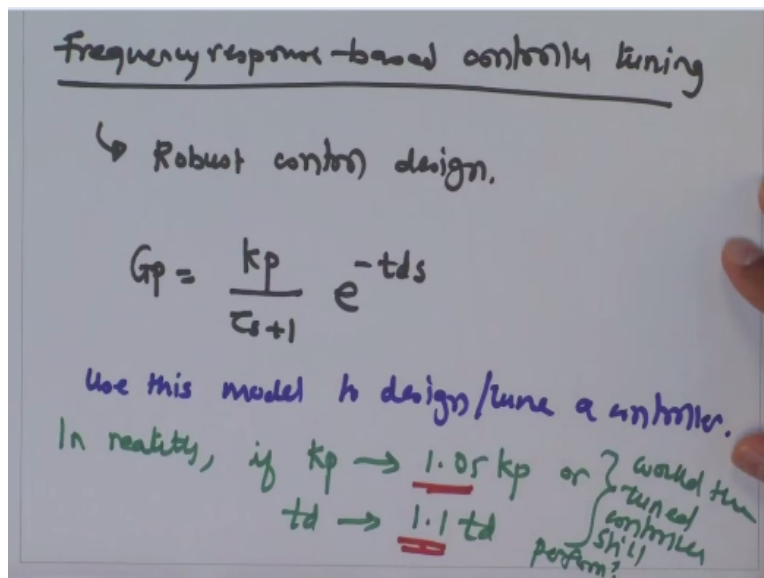 Frequency response-based controller tuning
↳ Robust control design.
Gp = kp / τs+1 e^-tds
Use this model to design/tune a controller.
In reality, if kp → 1.05 kp or
td → 1.1 td
} would the
tuned
controller
still
perform?